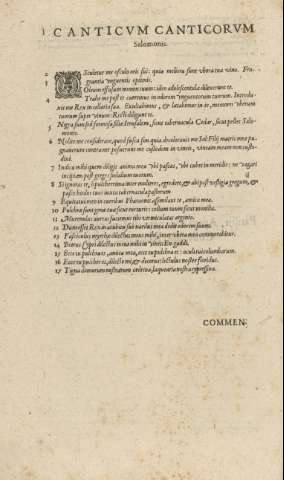 1 CANTICVM CANTICORVM
Salomonis.
2 Osculetur me osculo oris sui: quia meliora sunt vbera tua vino. Fra-
grantia vnguentis optimis.
3 Oleum effusum nomen tuum: ideo adolescentulæ dilexerunt te.
4 Trahe me post te curremus in odorem vnguentorum tuorum. Introdu-
xit me Rex in cellaria sua. Exultabimus, & lætabimur in te, memores vberum
tuorum super vinum: Recti diligunt te.
5 Nigra sum sed formosa filiæ Ierusalem, sicut tabernacula Cedar, sicut pelles Salo-
monis.
6 Nolite me considerare, quod fusca sim quia decolorauit me Sol: Filij matris meæ pu-
gnauerunt contra me posuerunt me custodem in vineis, vineam meam non custo-
diui.
7 Indica mihi quem diligit anima mea vbi pascas, vbi cubes in meridie: ne vagari
incipiam post greges sodalium tuorum.
8 Si ignoras te, o pulcherrima inter mulieres, egredere, & abi post vestigia gregum, &
pasce hœdos tuos iuxta tabernacula pastorum
9 Equitatui meo in curribus Pharaonis assimilaui te, amica mea.
10 Pulchræ sunt genæ tuæ sicut turturis: collum tuum sicut monilia.
11 Murenulas aureas faciemus tibi vermiculatas argento.
12 Dum esset Rex in accubitu suo nardus mea dedit odorem suum.
13 Fasciculus myrrhæ dilectus meus mihi, inter vbera mea commorabitur.
14 Botrus Cypri dilectus meus mihi in vineis Engaddi.
15 Ecce tu pulchra es, amica mea, ecce tu pulchra es: oculi tui columbarum.
16 Ecce tu pulcher es, dilecte mi, & decorus: lectulus noster floridus.
17 Tigna domorum nostrarum cedrina, laquearia nostra cypressina.
COMMEN-